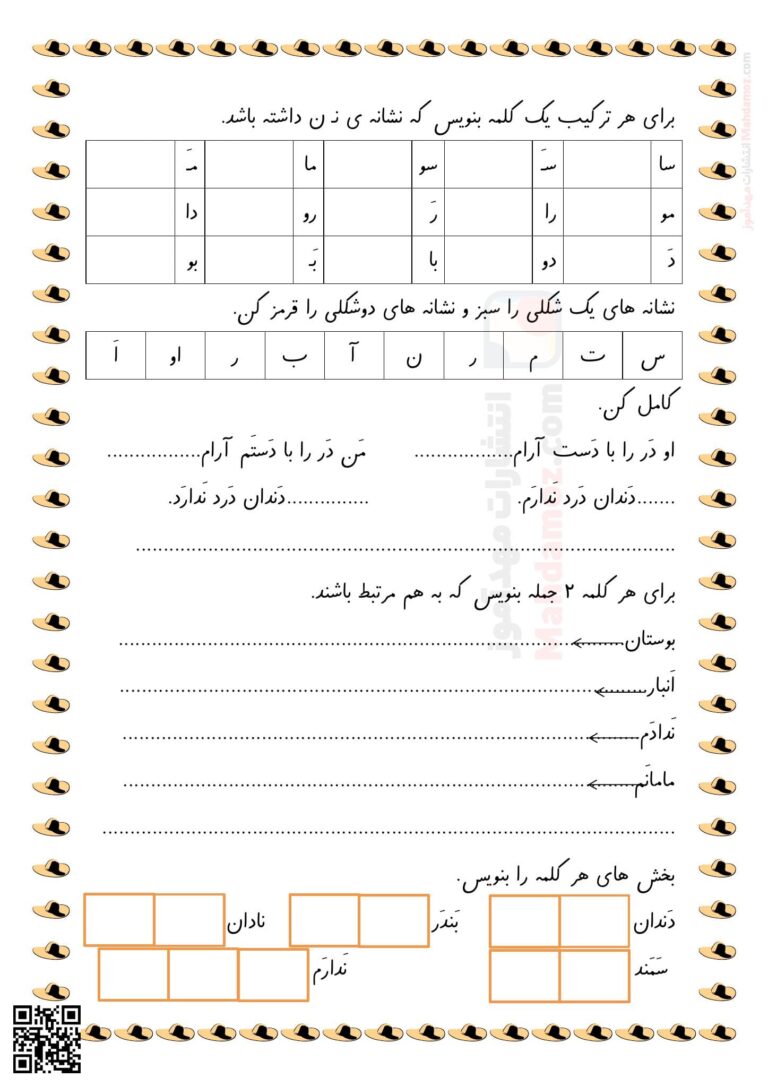 برای هر ترکیب یک کلمه بنویس که نشانه ی نـ ن داشته باشد.
سا سـَ سو ما مـَ
مو را رَ رو دا
دَ دو با بَـ بو
نشانه های یک شکلی را سبز و نشانه های دوشکلی را قرمز کن.
س ت م ر ن آ ب ر او اَ
کامل کن.
او دَر را با دَست آرام.................. مَن دَر را با دَستَم آرام.................
.......دَندان دَرد نَدارَم. ...............دَندان دَرد نَدارَد.
برای هر کلمه ۲ جمله بنویس که به هم مرتبط باشند.
بوستان
اَنبار
نَدادَم
مامانَم
بخش های هر کلمه را بنویس.
دَندان بَندَر نادان
سَمَند نَدارَم
انتشارات مهدآموز
Mahdamoz.com
انتشارات مهدآموز Mahdamoz.com